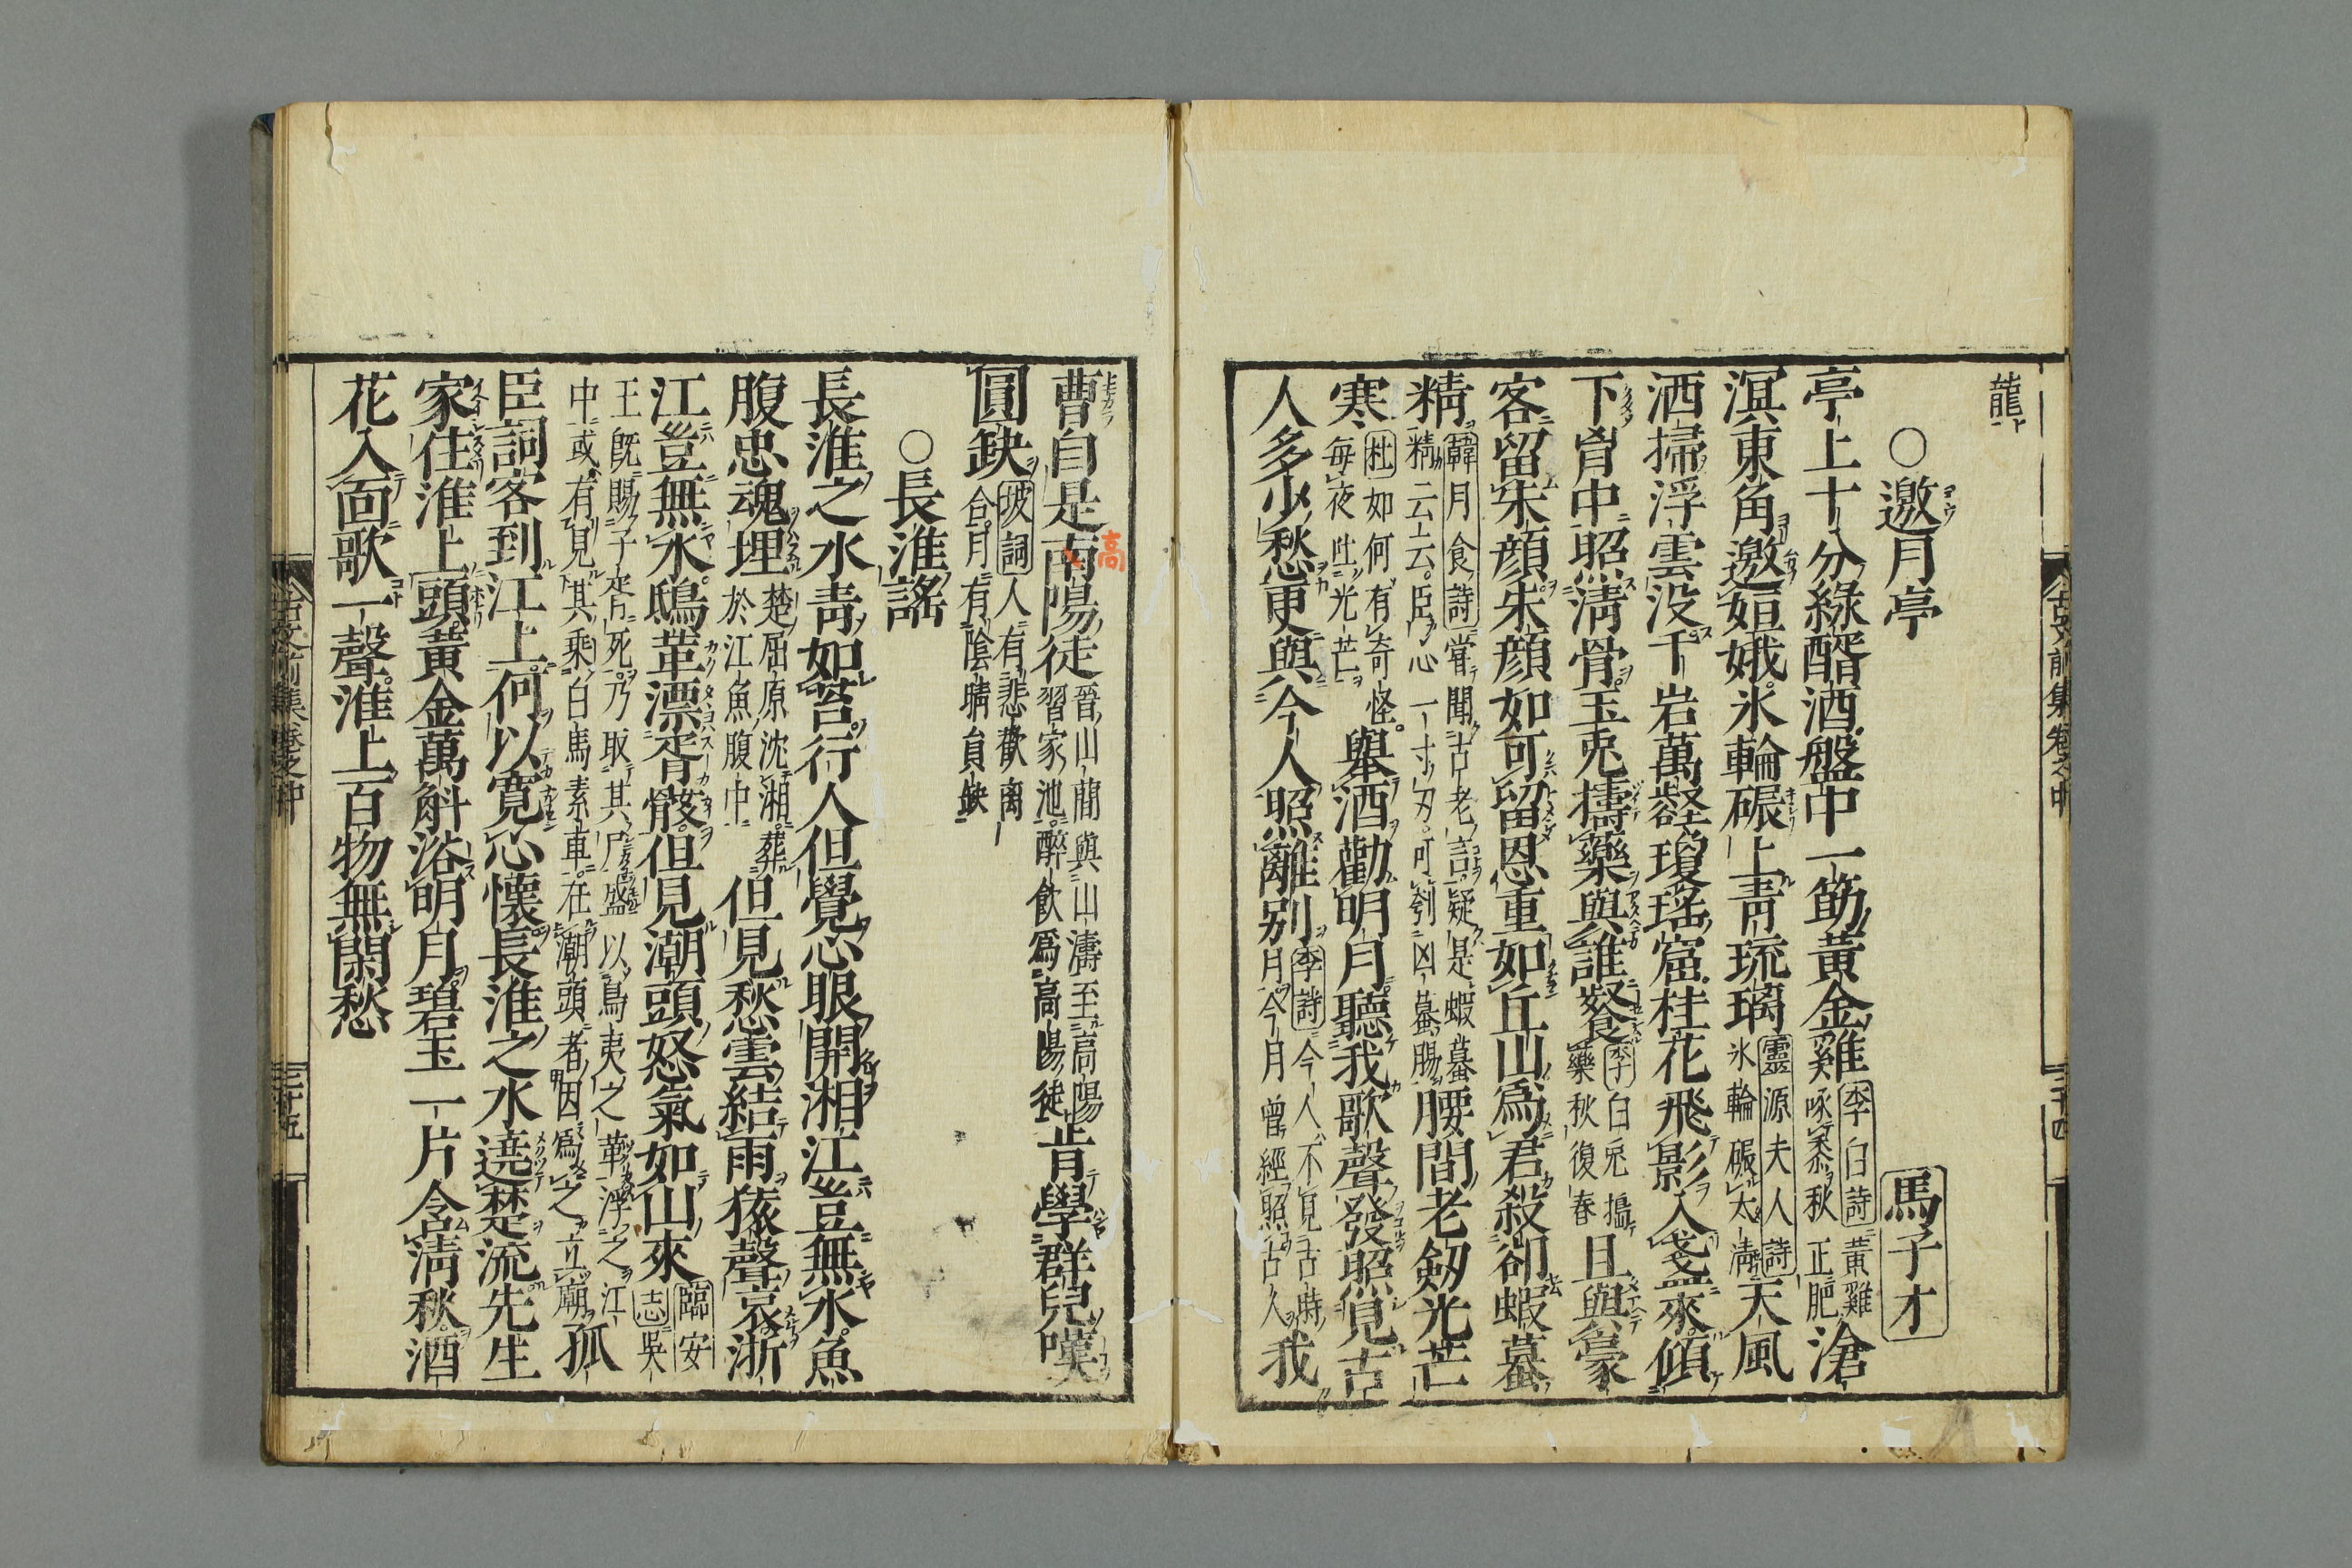 龍
○邀月亭 馬子才
亭上十分綠醑酒盤中一筯黃金雞李白詩黃雞啄黍秋正肥滄
溟東角邀姮娥氷輪碾上青琉璃靈源夫人詩氷輪碾太淸天風
洒掃浮雲没千岩萬壑瓊瑤窟桂花飛影入盞來傾
下胷中照淸骨玉兎擣藥與誰餐李白兎搗藥秋復春且與豪
客留朱顔朱顔如可留恩重如丘山爲君殺卻蝦蟇
精韓月食詩嘗聞古老言疑是蝦蟇精云云臣心一寸刃可刳凶蟇腸腰間老劔光芒
寒杜如何有奇怪每夜吐光芒舉酒勸明月聽我歌聲發照見古
人多少愁更與今人照離别李詩今人不見古時月今月曾經照古人我
曹自是南陽徒晉山簡與山濤至高陽習家池醉飲爲高陽徒肯學群兒嘆
高
圓缺坡詞人有悲歡離合月有陰晴員缺
○長淮謠
長淮之水青如苔行人但覺心眼開湘江豈無水魚
腹忠魂埋楚屈原沈湘葬於江魚腹中但見愁雲結雨猿聲哀浙
江豈無水鴟革漂胥骸但見潮頭怒氣如山來臨安志吳
王既賜子胥死乃取其尸盛以鳥夷之革浮之江中或有見其乘白馬素車在潮頭者因爲之立廟孤
臣詞客到江上何以寬心懷長淮之水遶楚流先生
家住淮上頭黃金萬斛浴明月碧玉一片含淸秋酒
花入面歌一聲淮上百物無閑愁
古文前集卷之中
三十四
古文前集卷之中
三十五